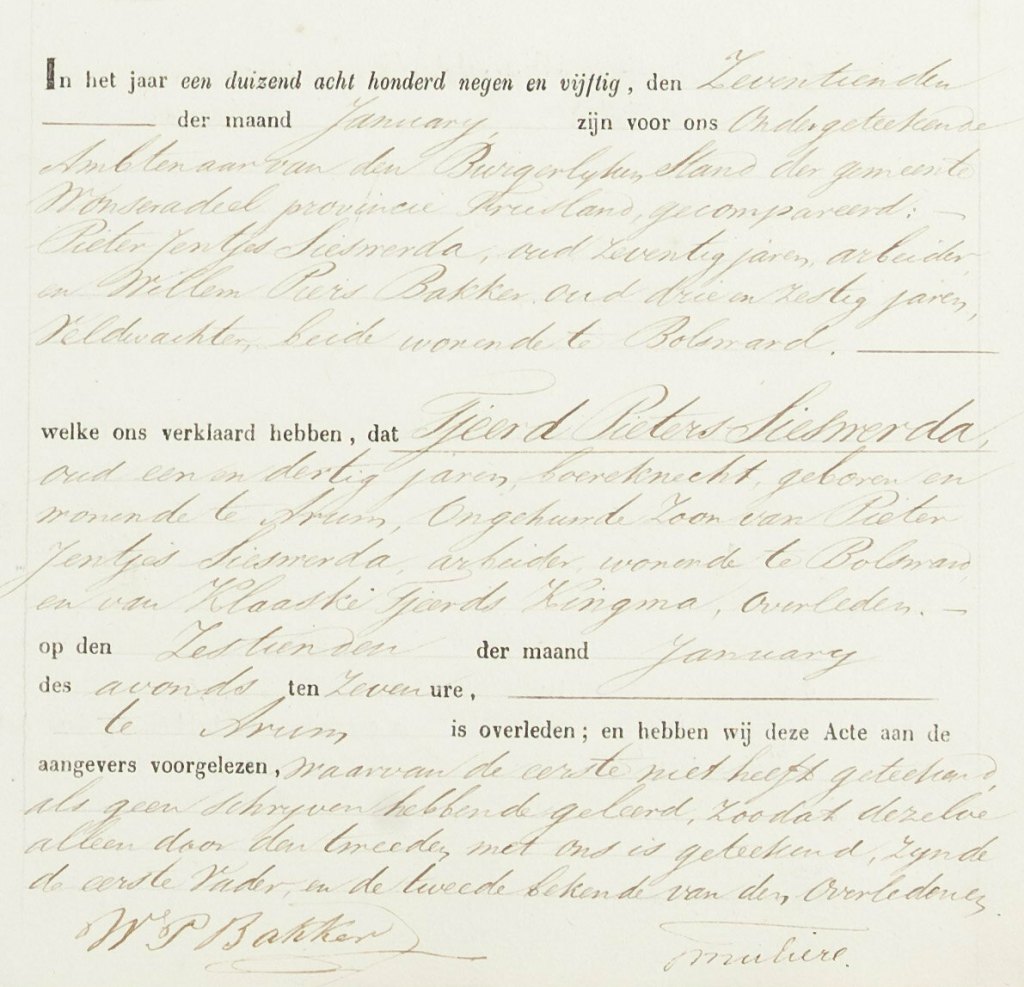 In het jaar een duizend acht honderd negen en vijftig, den Zeventienden
der maand January, zijn voor ons Ondergeteekende
Ambtenaar van den Burgerlyken Stand der gemeente
Wonseradeel provincie Friesland, gecompareerd:
Pieter Jentjes Sieswerda, oud zeventig jaren, arbeider
en Willem Piers Bakker oud drie en zestig jaren,
Veldwachter, beide wonende te Bolsward.
welke ons verklaard hebben, dat Tjeerd Pieters Sieswerda,
oud een en dertig jaren, boereknecht, geboren en
wonende te Arum, Ongehuwde Zoon van Pieter
Jentjes Sieswerda, arbeider, wonende te Bolsward
en van Klaaske Tjeerds Kingma, overleden.
op den Zestienden der maand January
des avonds ten zeven ure,
te Arum is overleden; en hebben wij deze Acte aan de
aangevers voorgelezen, waarvan de eerste niet heeft geteekend,
als geen schryven hebbende geleerd, zoodat dezelve
alleen door den tweeden met ons is geteekend, zynde
de eerste Vader, en de tweede bekende van den Overledenen.
Ws P Bakker